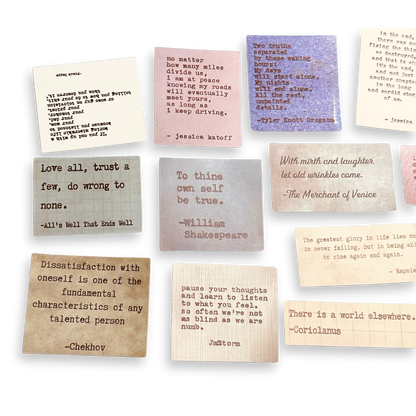 no matter
how many miles
divide us,
I am at peace
knowing my roads
will eventually
meet yours,
as long as
I keep driving.
- jessica katoff
Two truths
separated
by these waking
hours:
My days
will start alone.
My nights
will end alone.
All the rest,
unpainted
details.
-Tyler Knott Gregson
in the end,
fixing this
we destroyed,
and that is
it's the end,
and not just
another chapter
in the long
and sordid
of us.
- Jessica
-Frank Zappa
If you end up with a
boring miserable life
because you listened to
your mom,
your dad,
your teacher,
your priest,
or some guy on television
telling you how to do your shit,
then you deserve it.
Love all, trust a
few, do wrong to
none.
-All's Well That Ends Well
To thine
own self
be true.
-William
Shakespeare
With mirth and laughter
let old wrinkles come.
-The Merchant of Venice
The greatest glory in life lies no
in never failing, but in being abl
to rise again and again.
- Napole
Dissatisfaction with
oneself is one of the
fundamental
characteristics of any
talented person
-Chekhov
pause your thoughts
and learn to listen
to what you feel.
so often we're not
as blind as we are
numb.
JmStorm
There is a world elsewhere.
-Coriolanus